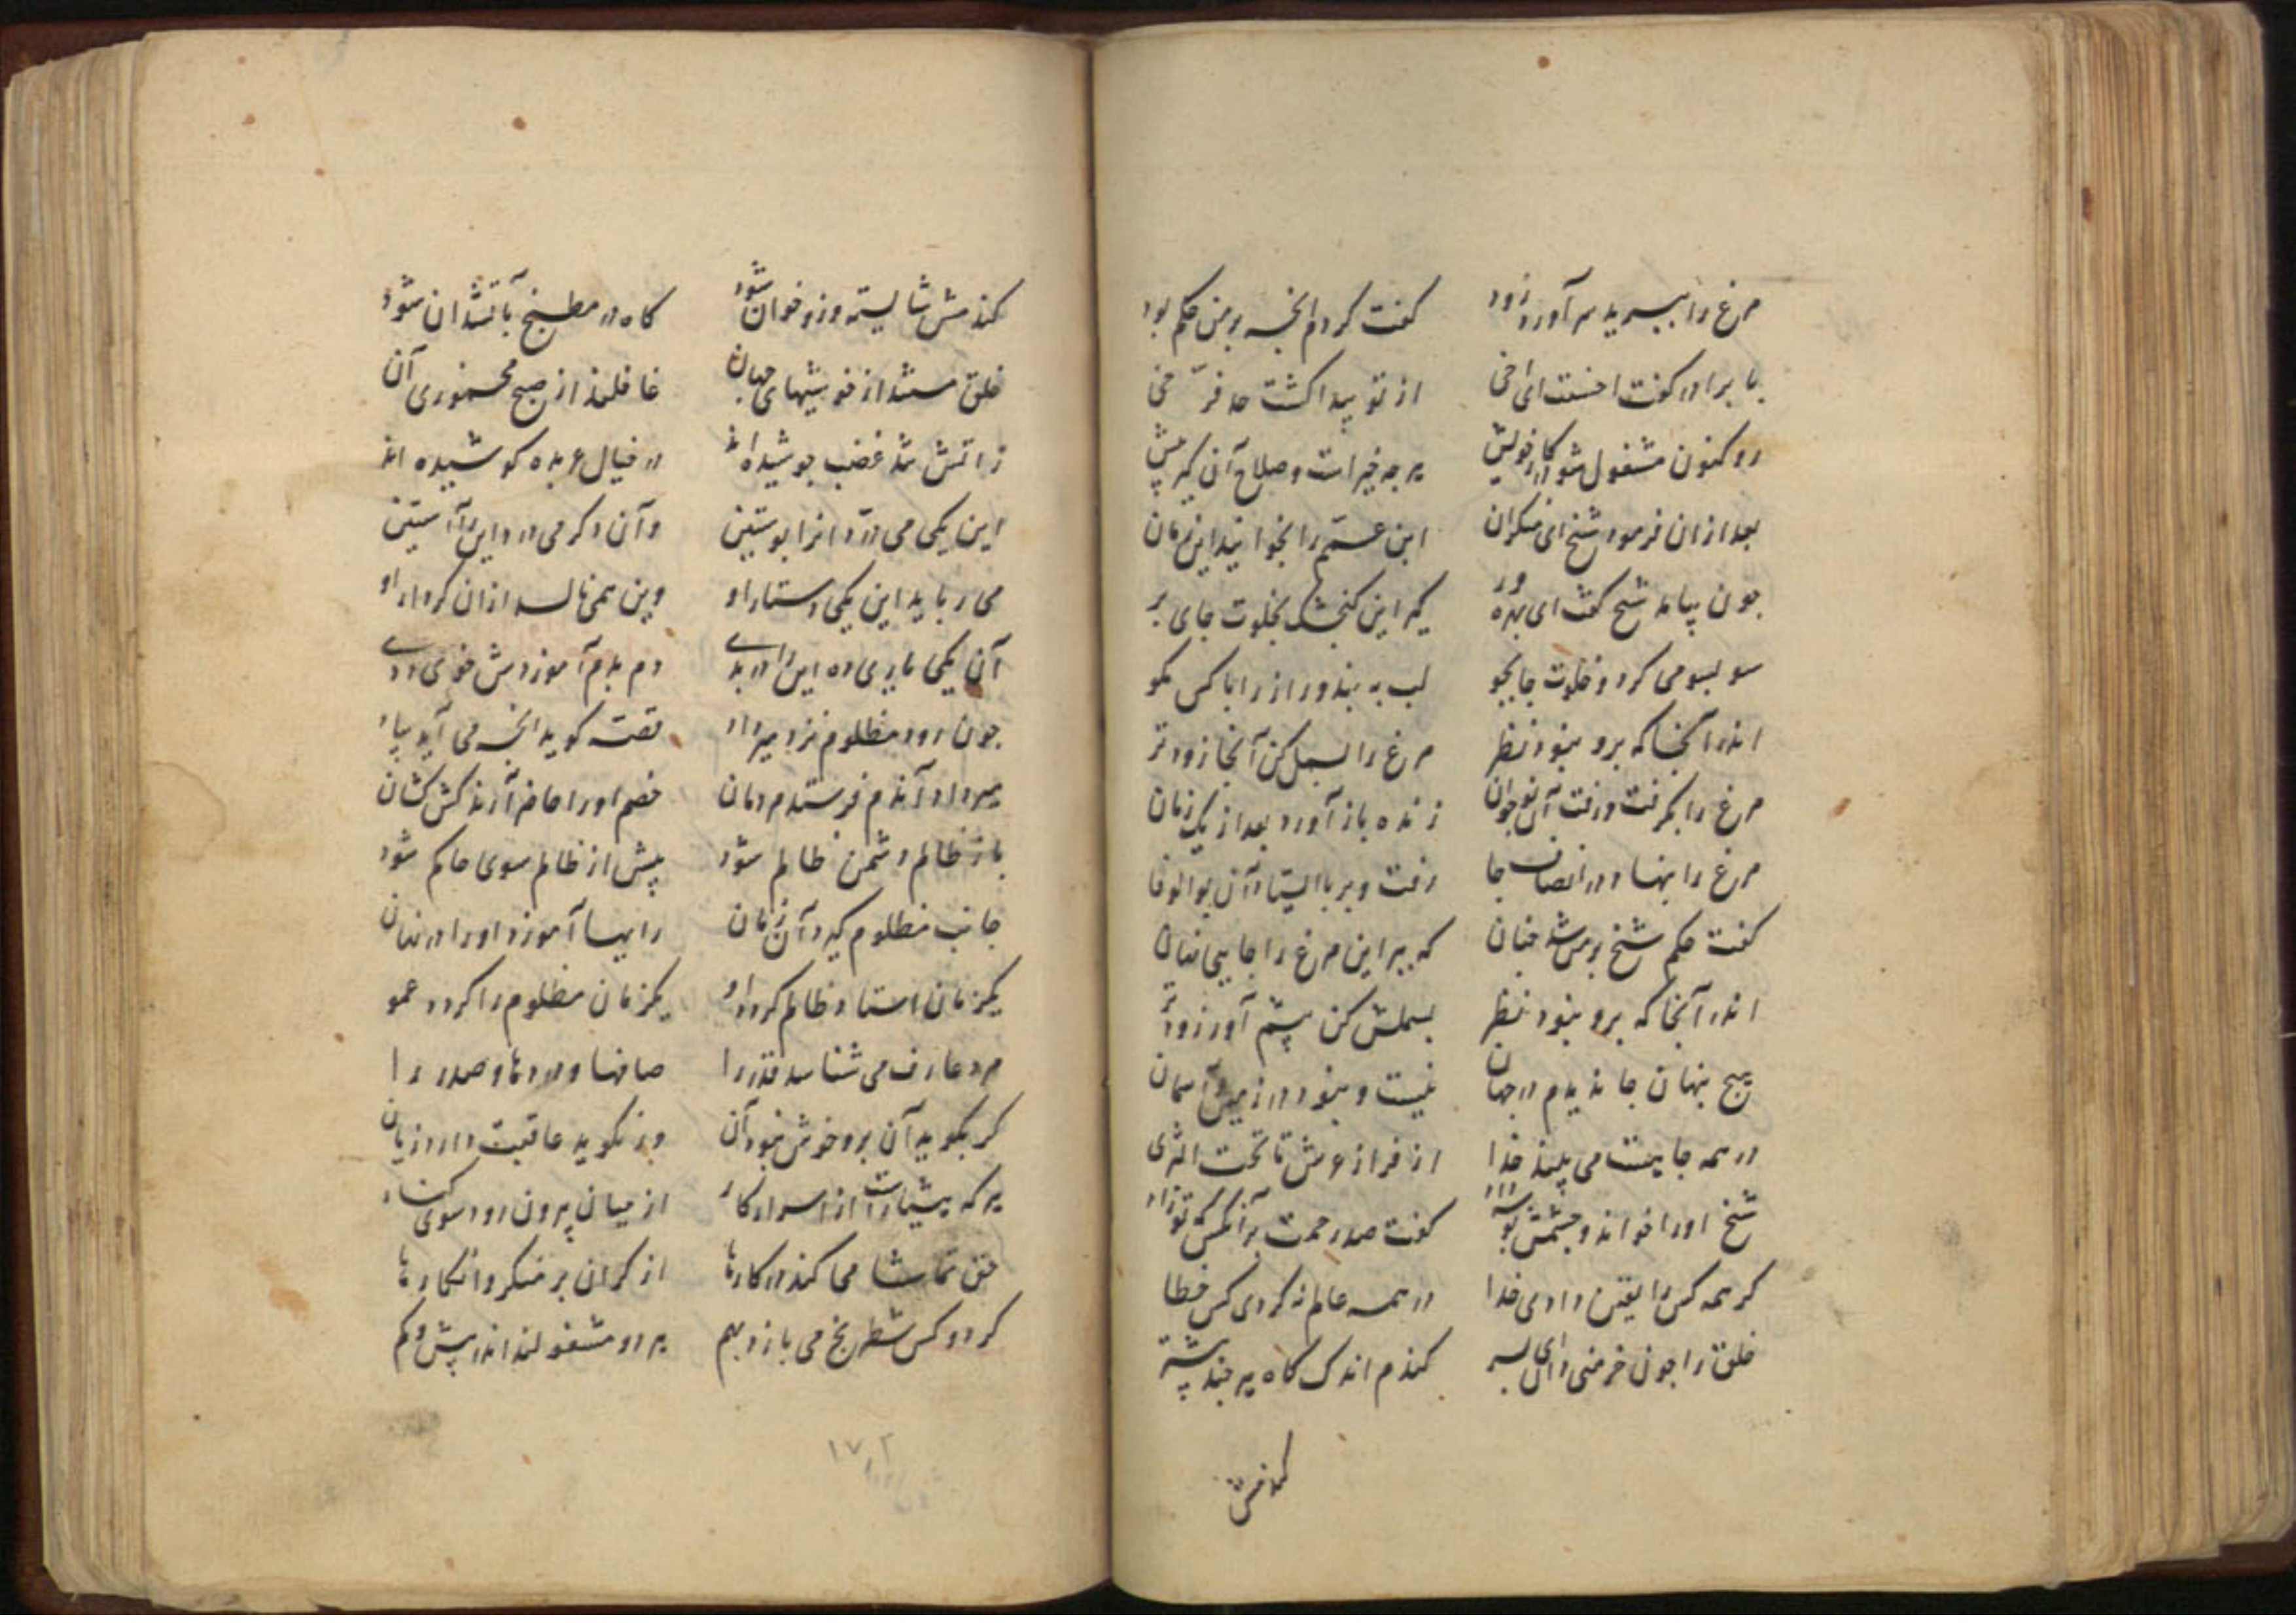 مرغ را ببرید سر آورد زود گفت کردم انچه بر من حکم بود
با برادر گفت احسنت ای اخی از تو پیدا گشت صد فرّ سخی
رو کنون مشغول شو در کار خویش هر چه خیرات و صلاح آن گیر پیش
بعد ازان فرمود شیخ ای منکران ابن عمّم را بخوانید این زمان
چون بیامد شیخ گفت ای بهره ور گیر این کنجشک بخلوت جای بر
سو بسو می کرد و خلوت جا بجو لب به بند و راز را با کس مگو
اندر آنجا که برو نبود نظر مرغ را بسمل کن آنجا زود تر
مرغ را بگرفت و رفت آن نوجوان زنده باز آورد بعد از یک زمان
مرغ را بنهاد در انصاف جا رفت و بر پا ایستاد آن بوالوفا
گفت حکم شیخ بر من شد چنان که ببر این مرغ را جایی نهان
اندر آنجا که برو نبود نظر بسملش کن پیشم آور زودتر
هیچ پنهان جا ندیدم در جهان نیست و نبود در زمین و آسمان
در همه جا هست می بیند خدا از فراز عرش تا تحت الثری
شیخ او را خواند و چشمش بوسه داد گفت صد رحمت بر آنکس کت بزاد
گر همه کس را یقین دادی خدا در همه عالم نکردی کس خطا
خلق را چون خرمنی دان ای پسر گندم اندک کاه هر چند بیشتر
گندمش
گندمش شایسته وز و خوان شود کاه در مطبخ بآتشدان شود
خلق مستند از خوشیهای جهان غافلند از صبح مخموری آن
زاتش تند غضب جوشیده اند در خیال عربده کوشیده اند
این یکی می درّد انرا پوستین وآن دگر می درد این را آستین
می رباید این یکی دستار او وین همی نالد ازان کردار او
آن یکی یاری ده این را در بدی دم بدم آموزدش خوی ددی
چون رود مظلوم نزد میر داد قصه گوید انچه می آید بیاد
میر داد آندم فرستد مردمان خصم او را حاضر آرند کش کشان
باز ظالم دشمن ظالم شود پیش از ظالم سوی حاکم شود
جانب مظلوم گیرد آن زمان راهها آموزد او را در نهان
یکزمان استاد ظالم گردد او یکزمان مظلوم را گردد عمو
مرد عارف می شناسد قدر را صافها و دردها و صدر را
گر بگوید آن برو خوش نبود آن ور نگوید عاقبت دارد زیان
هر که هشیارست از اسرار کار از میان بیرون رود سوی کنار
حق تماشا می کند در کارها از کران بر منکر و انکارها
گر دو کس شطرنج می بازد بهم هر دو مشغولند اندر بیش و کم
۱۷۰۲